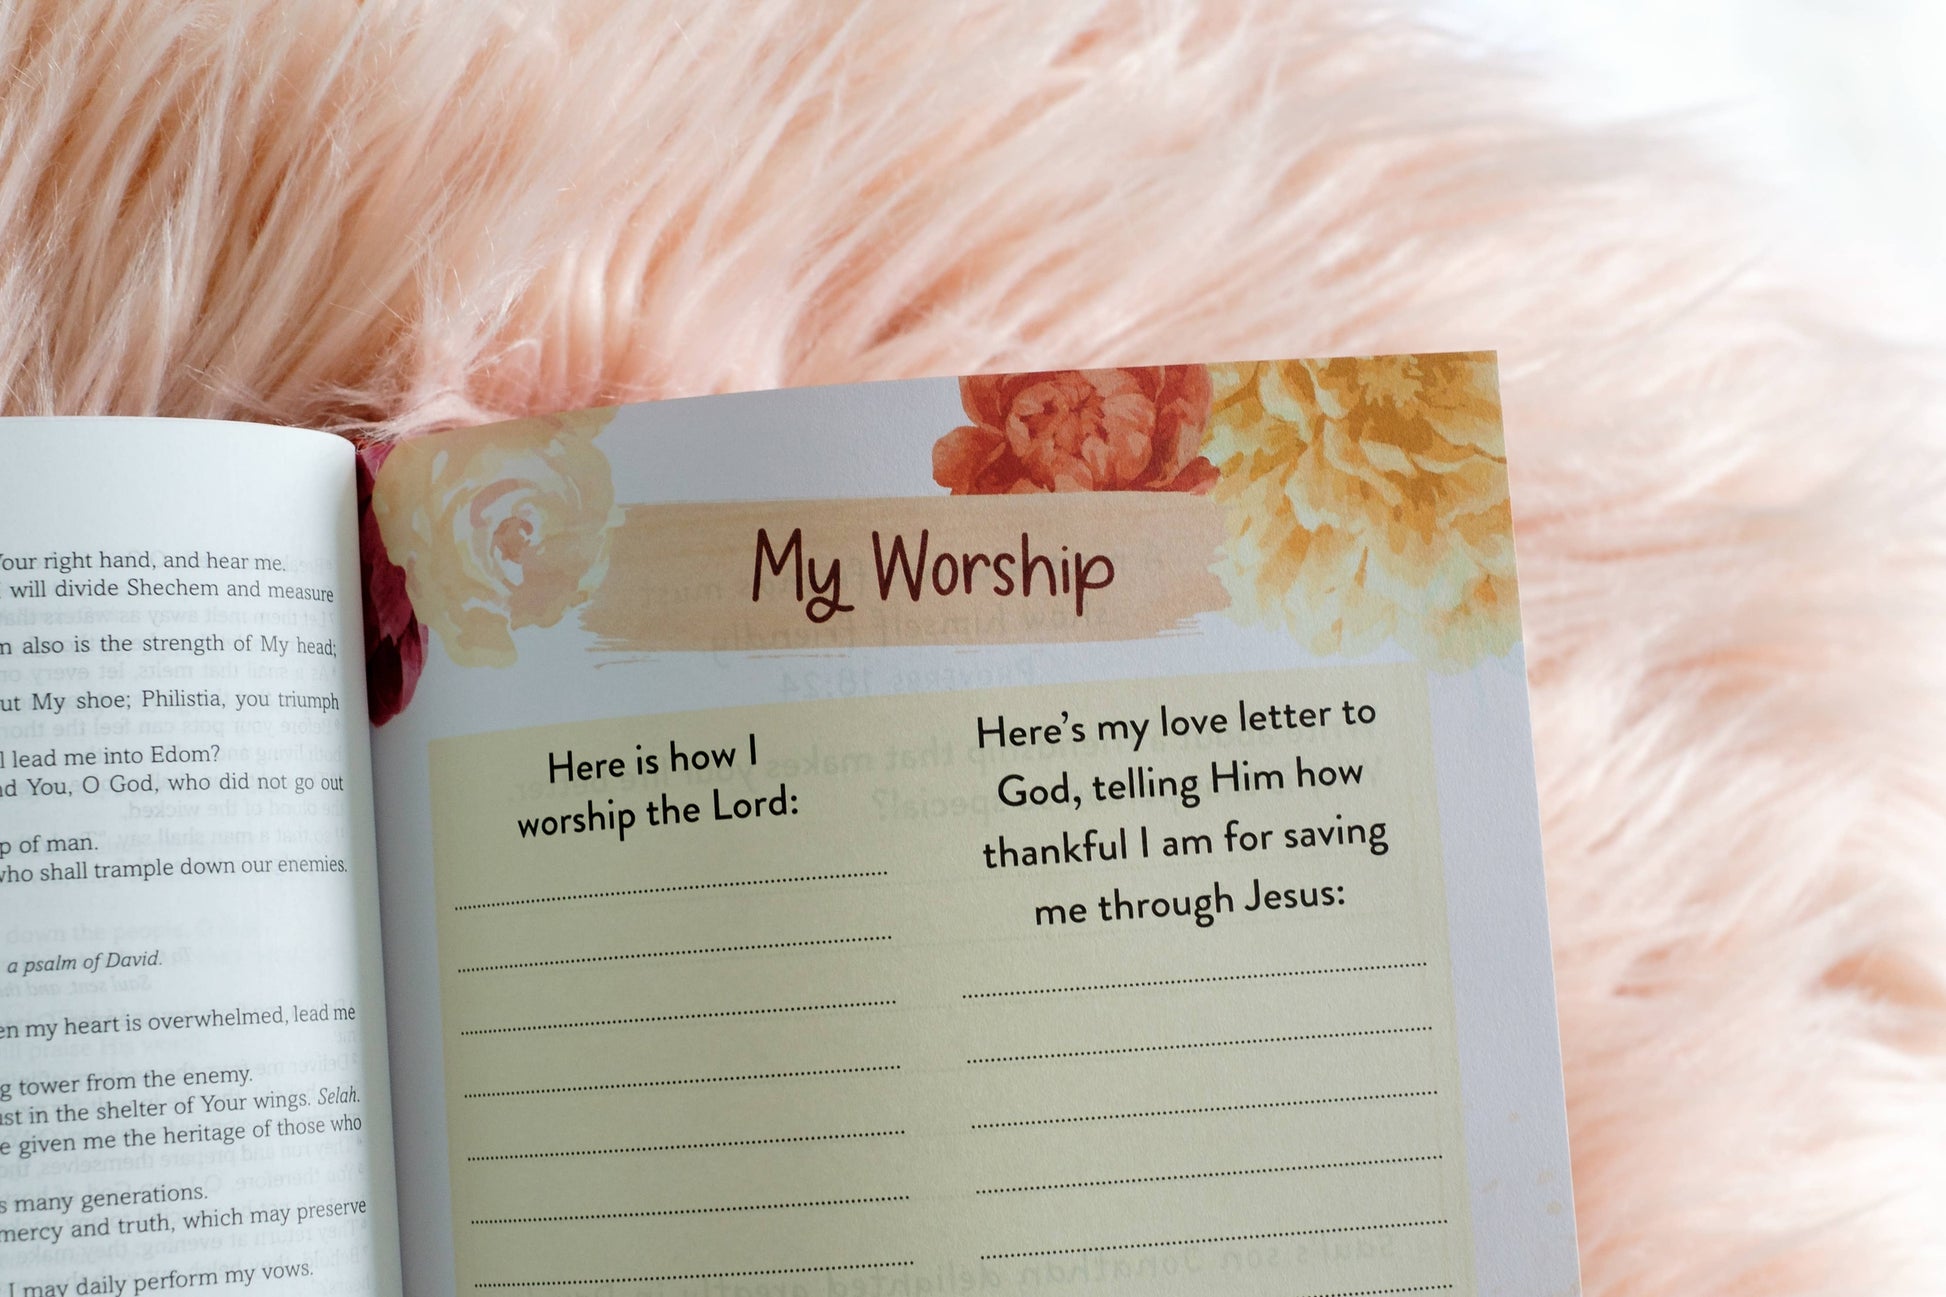 Your right hand, and hear me.
will divide Shechem and measure
also is the strength of My head;
My shoe; Philistia, you triumph
lead me into Edom?
You, O God, who did not go out
of man.
who shall trample down our enemies.
a psalm of David.
my heart is overwhelmed, lead me
tower from the enemy.
in the shelter of Your wings. Selah.
given me the heritage of those who
many generations.
mercy and truth, which may preserve
I may daily perform my vows.
My Worship
Here is how I
worship the Lord:
Here’s my love letter to
God, telling Him how
thankful I am for saving
me through Jesus: